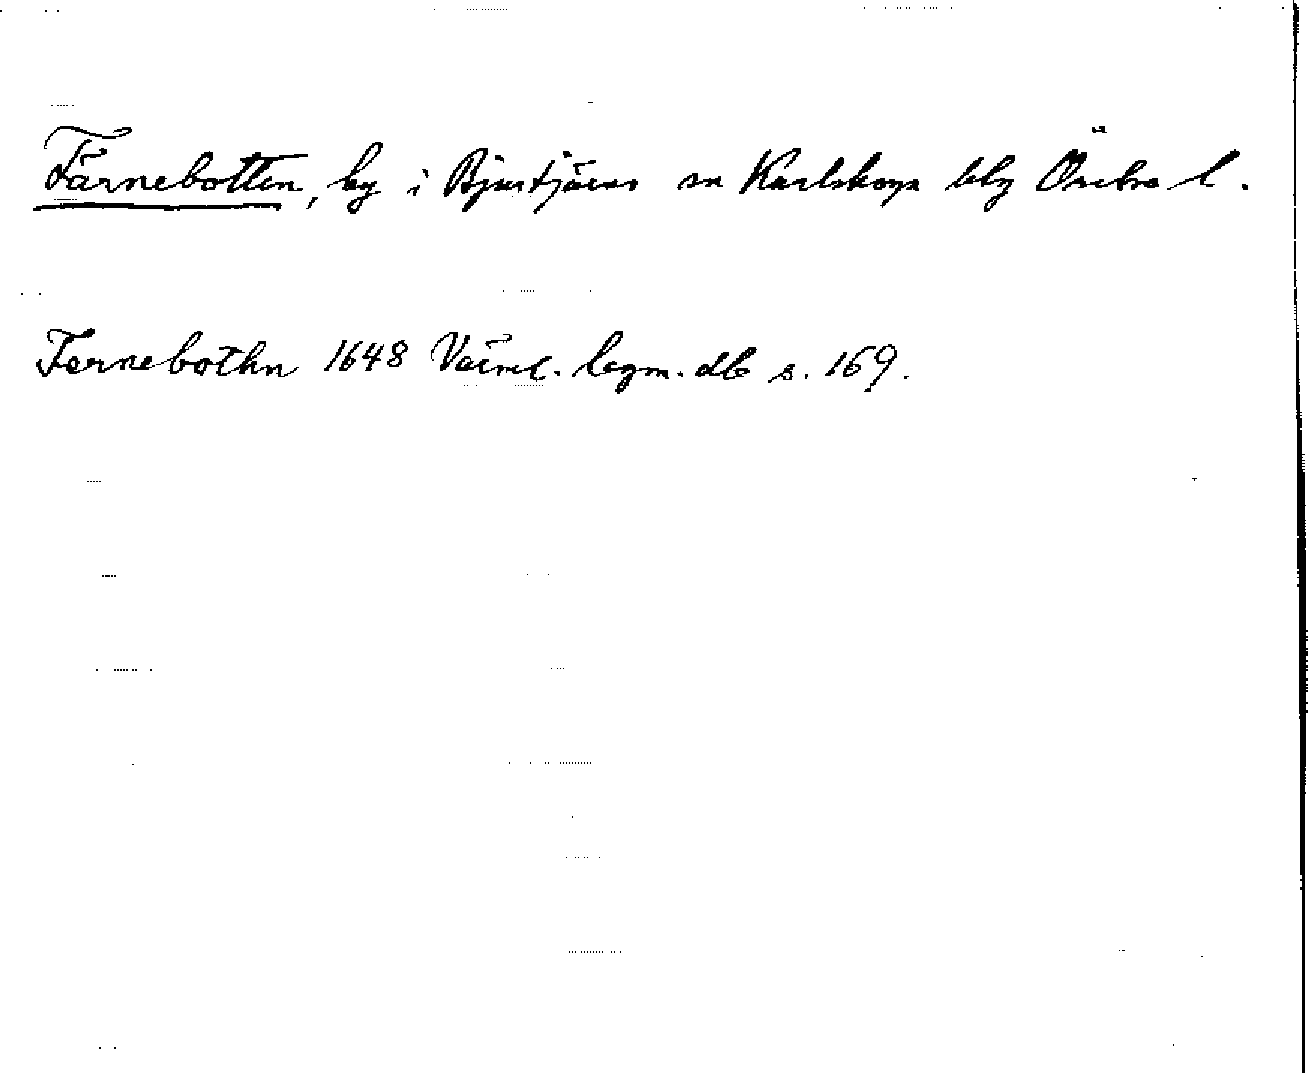 Färnebotten, by i Bjurtjärns sn Karlskoga blg Örebro l.
Fernebothn 1648 Värml. lagm. db s. 169.